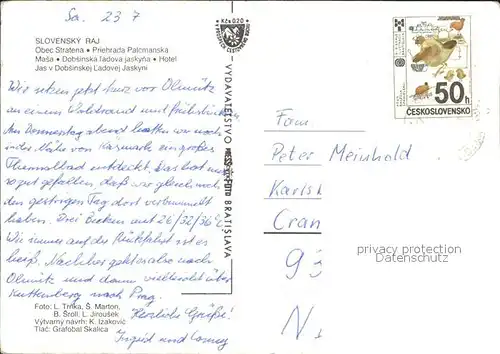 Sa. 23 7
SLOVENSKÝ RAJ
Obec Stratena • Priehrada Palcmanska
Maša • Dobšinská ľadová jaskyňa • Hotel
Jas v Dobšinskej Ľadovej Jaskyni
Wir sitzen jetzt kurz vor Olmütz
an einem Waldrand und frühstücken.
Am Donnerstag abend hatten wir noch
in der Nähe von Käsmark ein großes
Thermalbad entdeckt. Das hat uns
so gut gefallen, daß wir gleich noch
den gestrigen Tag dort verbummelt
haben. Drei Becken mit 26/32/36°C.
Wie immer auf der Rückfahrt ist es
heiß. Nachher geht es also nach
Olmütz und dann vielleicht über
Kuttenberg nach Prag.
Herzliche Grüße!
Ingrid und
Foto: L. Trnka, Š. Marton,
B. Šroll, L. Jiroušek
Výtvarný návrh: K. Izakovič
Tlač: Grafobal Skalica
Kčs 0,20
VYDAVATEĽSTVO PRESSFOTO BRATISLAVA
50h
ČESKOSLOVENSKO
Fam.
Peter Meinhold
Karls
Cran
93
privacy protection
Datenschutz